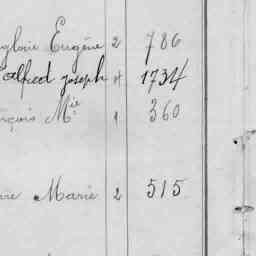 Eugène 2 786
Alfred Joseph 4 1734
nçois Mie 1 360
Marie 2 515